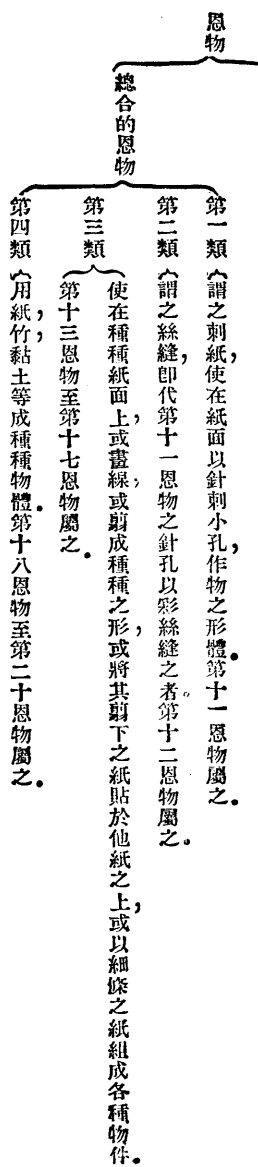 恩物
總合的恩物
第一類
謂之刺紙，使在紙面以針刺小孔，作物之形體。第十一恩物屬之。
第二類
謂之絲縫，卽代第十一恩物之針孔以彩絲縫之者。第十二恩物屬之。
第三類
使在種種紙面上，或畫線，或剪成種種之形，或將其剪下之紙貼於他紙之上，或以細條之紙組成各種物件。
第十三恩物至第十七恩物屬之。
第四類
用紙，竹，黏土等成種種物體。第十八恩物至第二十恩物屬之。